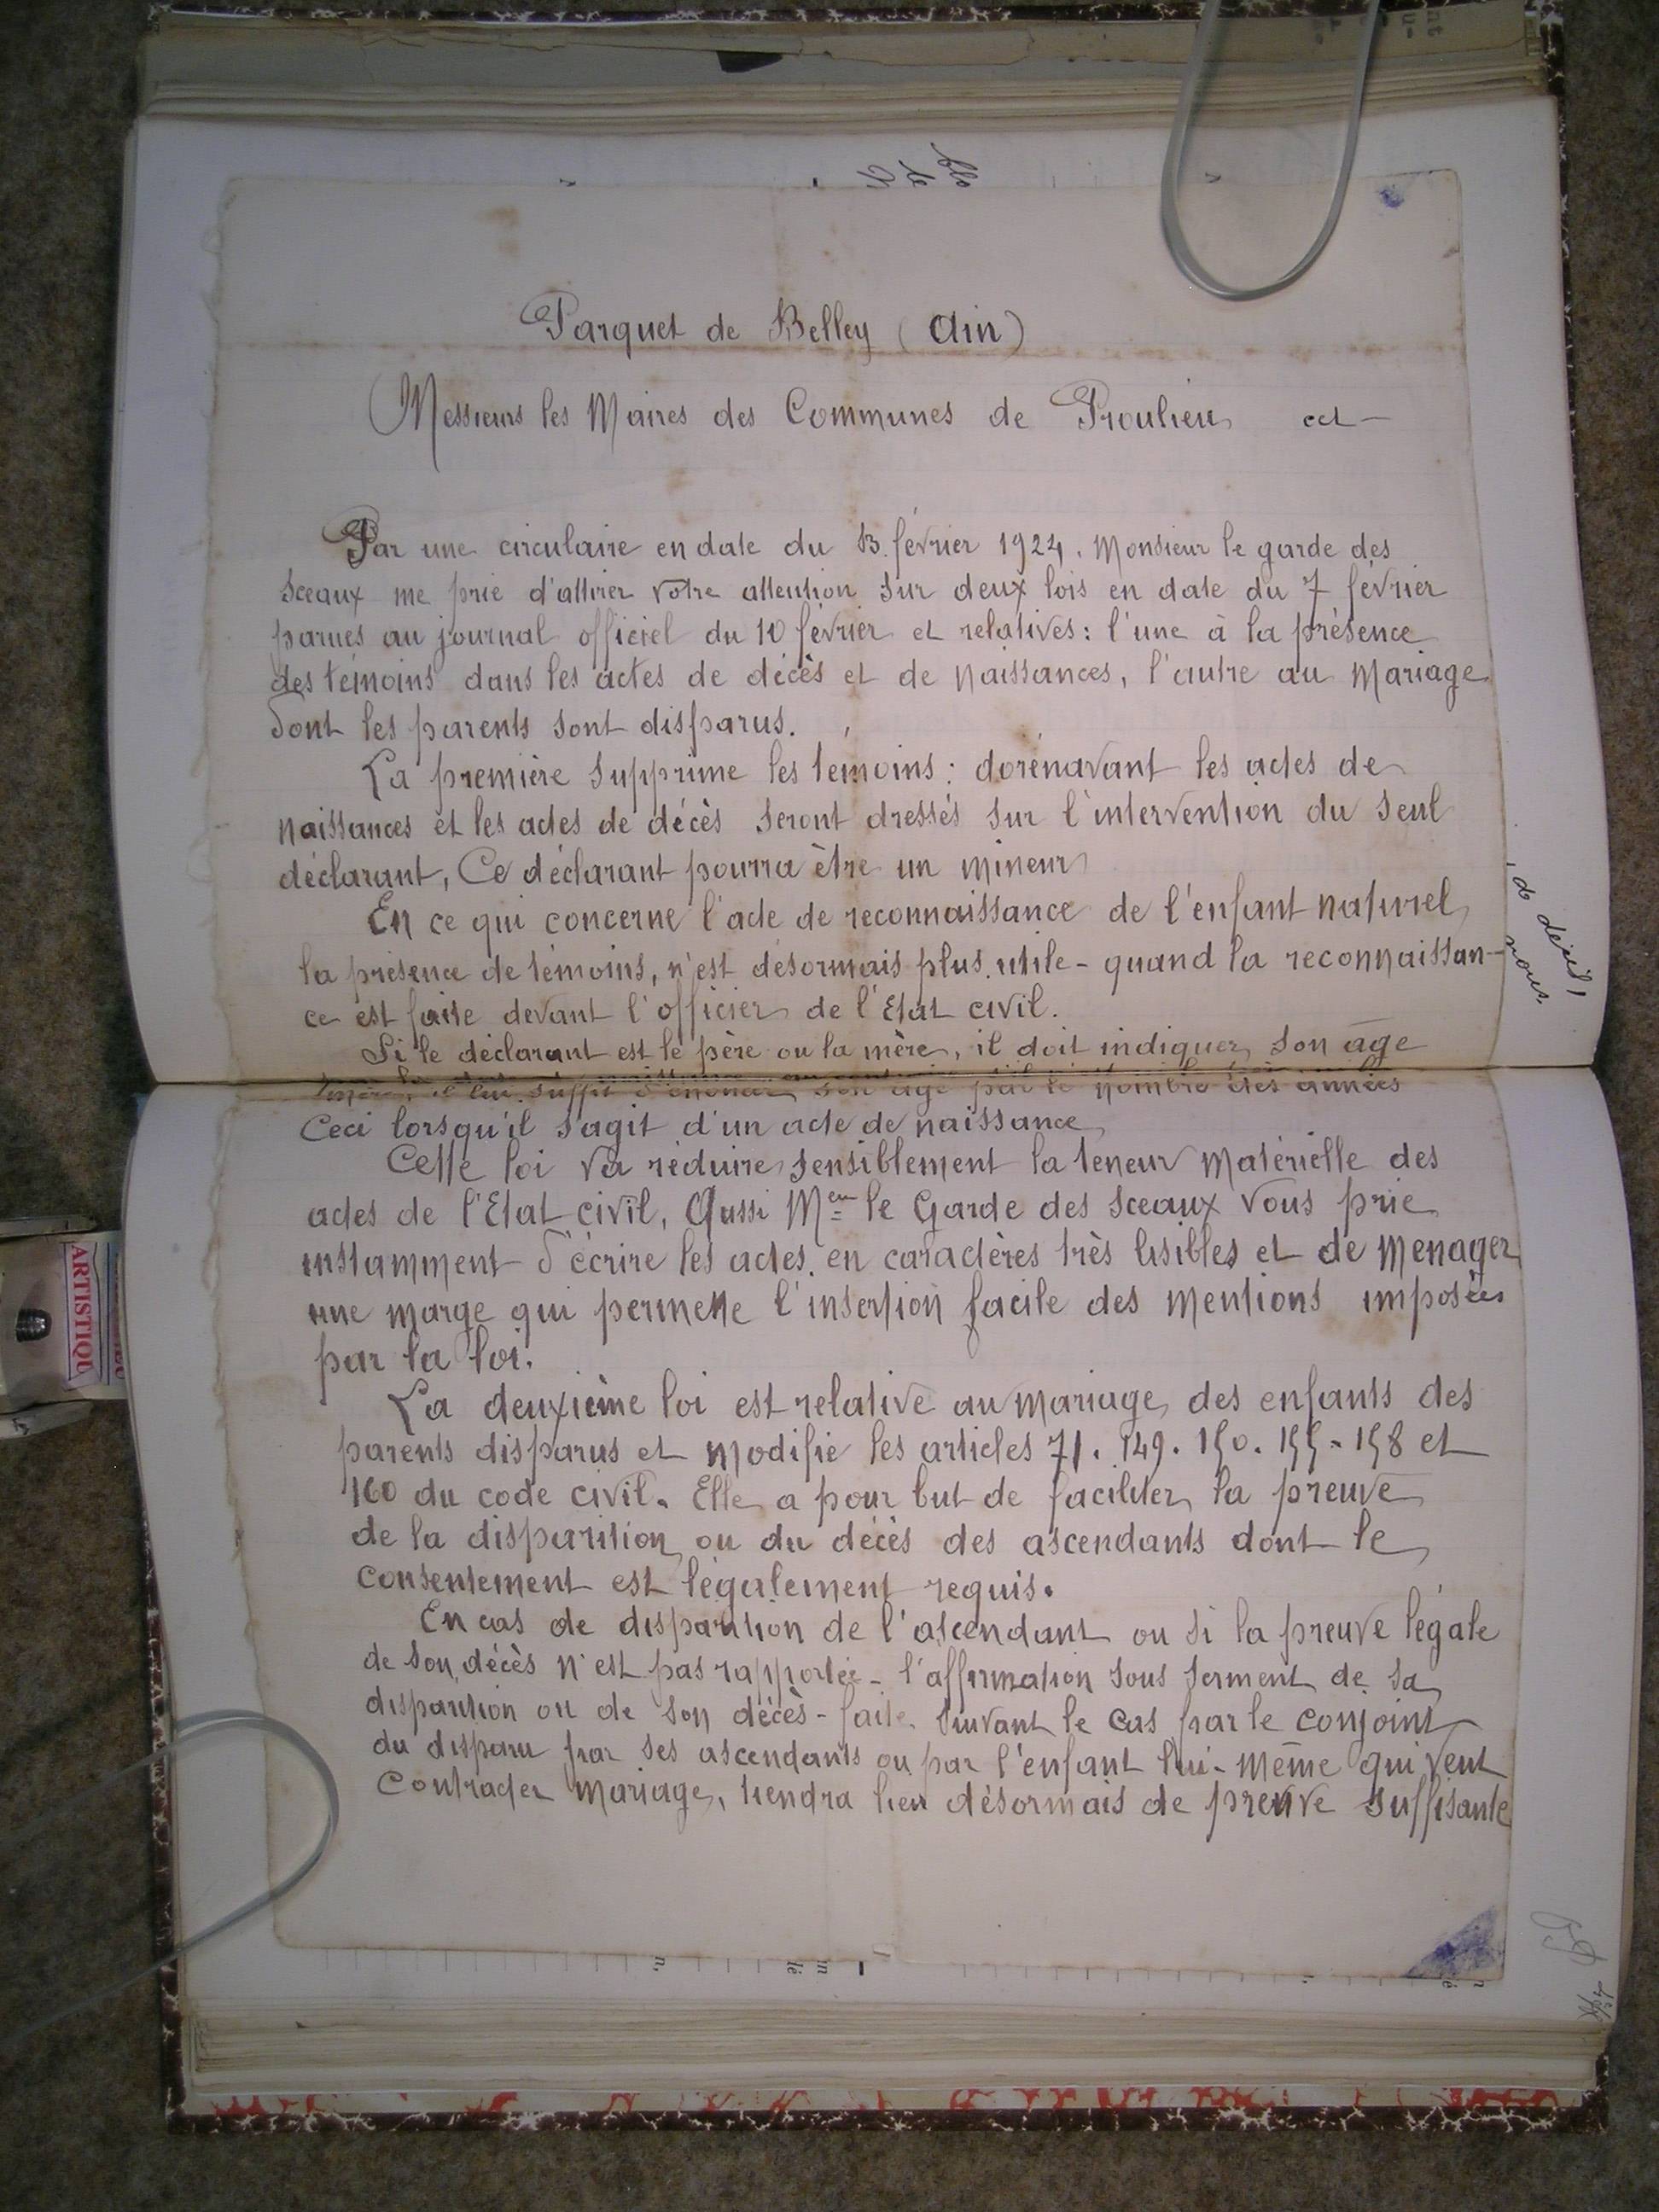 Parquet de Belley (Ain)
Messieurs les Maires des Communes de Proulieu et
Par une circulaire en date du 13 février 1924, Monsieur le garde des
sceaux me prie d'attirer votre attention sur deux lois en date du 7 février
parues au journal officiel du 10 février et relatives : l'une à la présence
des témoins dans les actes de décès et de naissances, l'autre au Mariage
dont les parents sont disparus.
La première supprime les témoins : dorénavant les actes de
naissances et les actes de décès seront dressés sur l'intervention du seul
déclarant, Ce déclarant pourra être un mineur
En ce qui concerne l'acte de reconnaissance de l'enfant naturel,
la présence de témoins, n'est désormais plus utile - quand la reconnaissan-
ce est faite devant l'officier de l'Etat civil.
Si le déclarant est le père ou la mère, il doit indiquer son âge
il lui suffit d'énoncer son âge par le nombre des années
Ceci lorsqu'il s'agit d'un acte de naissance
Cette loi va réduire sensiblement la teneur matérielle des
actes de l'Etat civil, Aussi Meur le Garde des Sceaux vous prie
instamment d'écrire les actes en caractères très lisibles et de menager
une marge qui permette l'insertion facile des mentions imposées
par la loi.
La deuxième loi est relative au mariage des enfants des
parents disparus et modifie les articles 71. 149. 150. 155. 158 et
160 du code civil. Elle a pour but de faciliter la preuve
de la disparition ou du décès des ascendants dont le
consentement est légalement requis.
En cas de disparition de l'ascendant ou si la preuve légale
de son décès n'est pas rapportée - l'affirmation sous serment de sa
disparition ou de son décès - faite suivant le cas par le conjoint
du disparu par ses ascendants ou par l'enfant lui-même qui veut
Contracter mariage, tiendra lieu désormais de preuve suffisante
ARTISTIQU